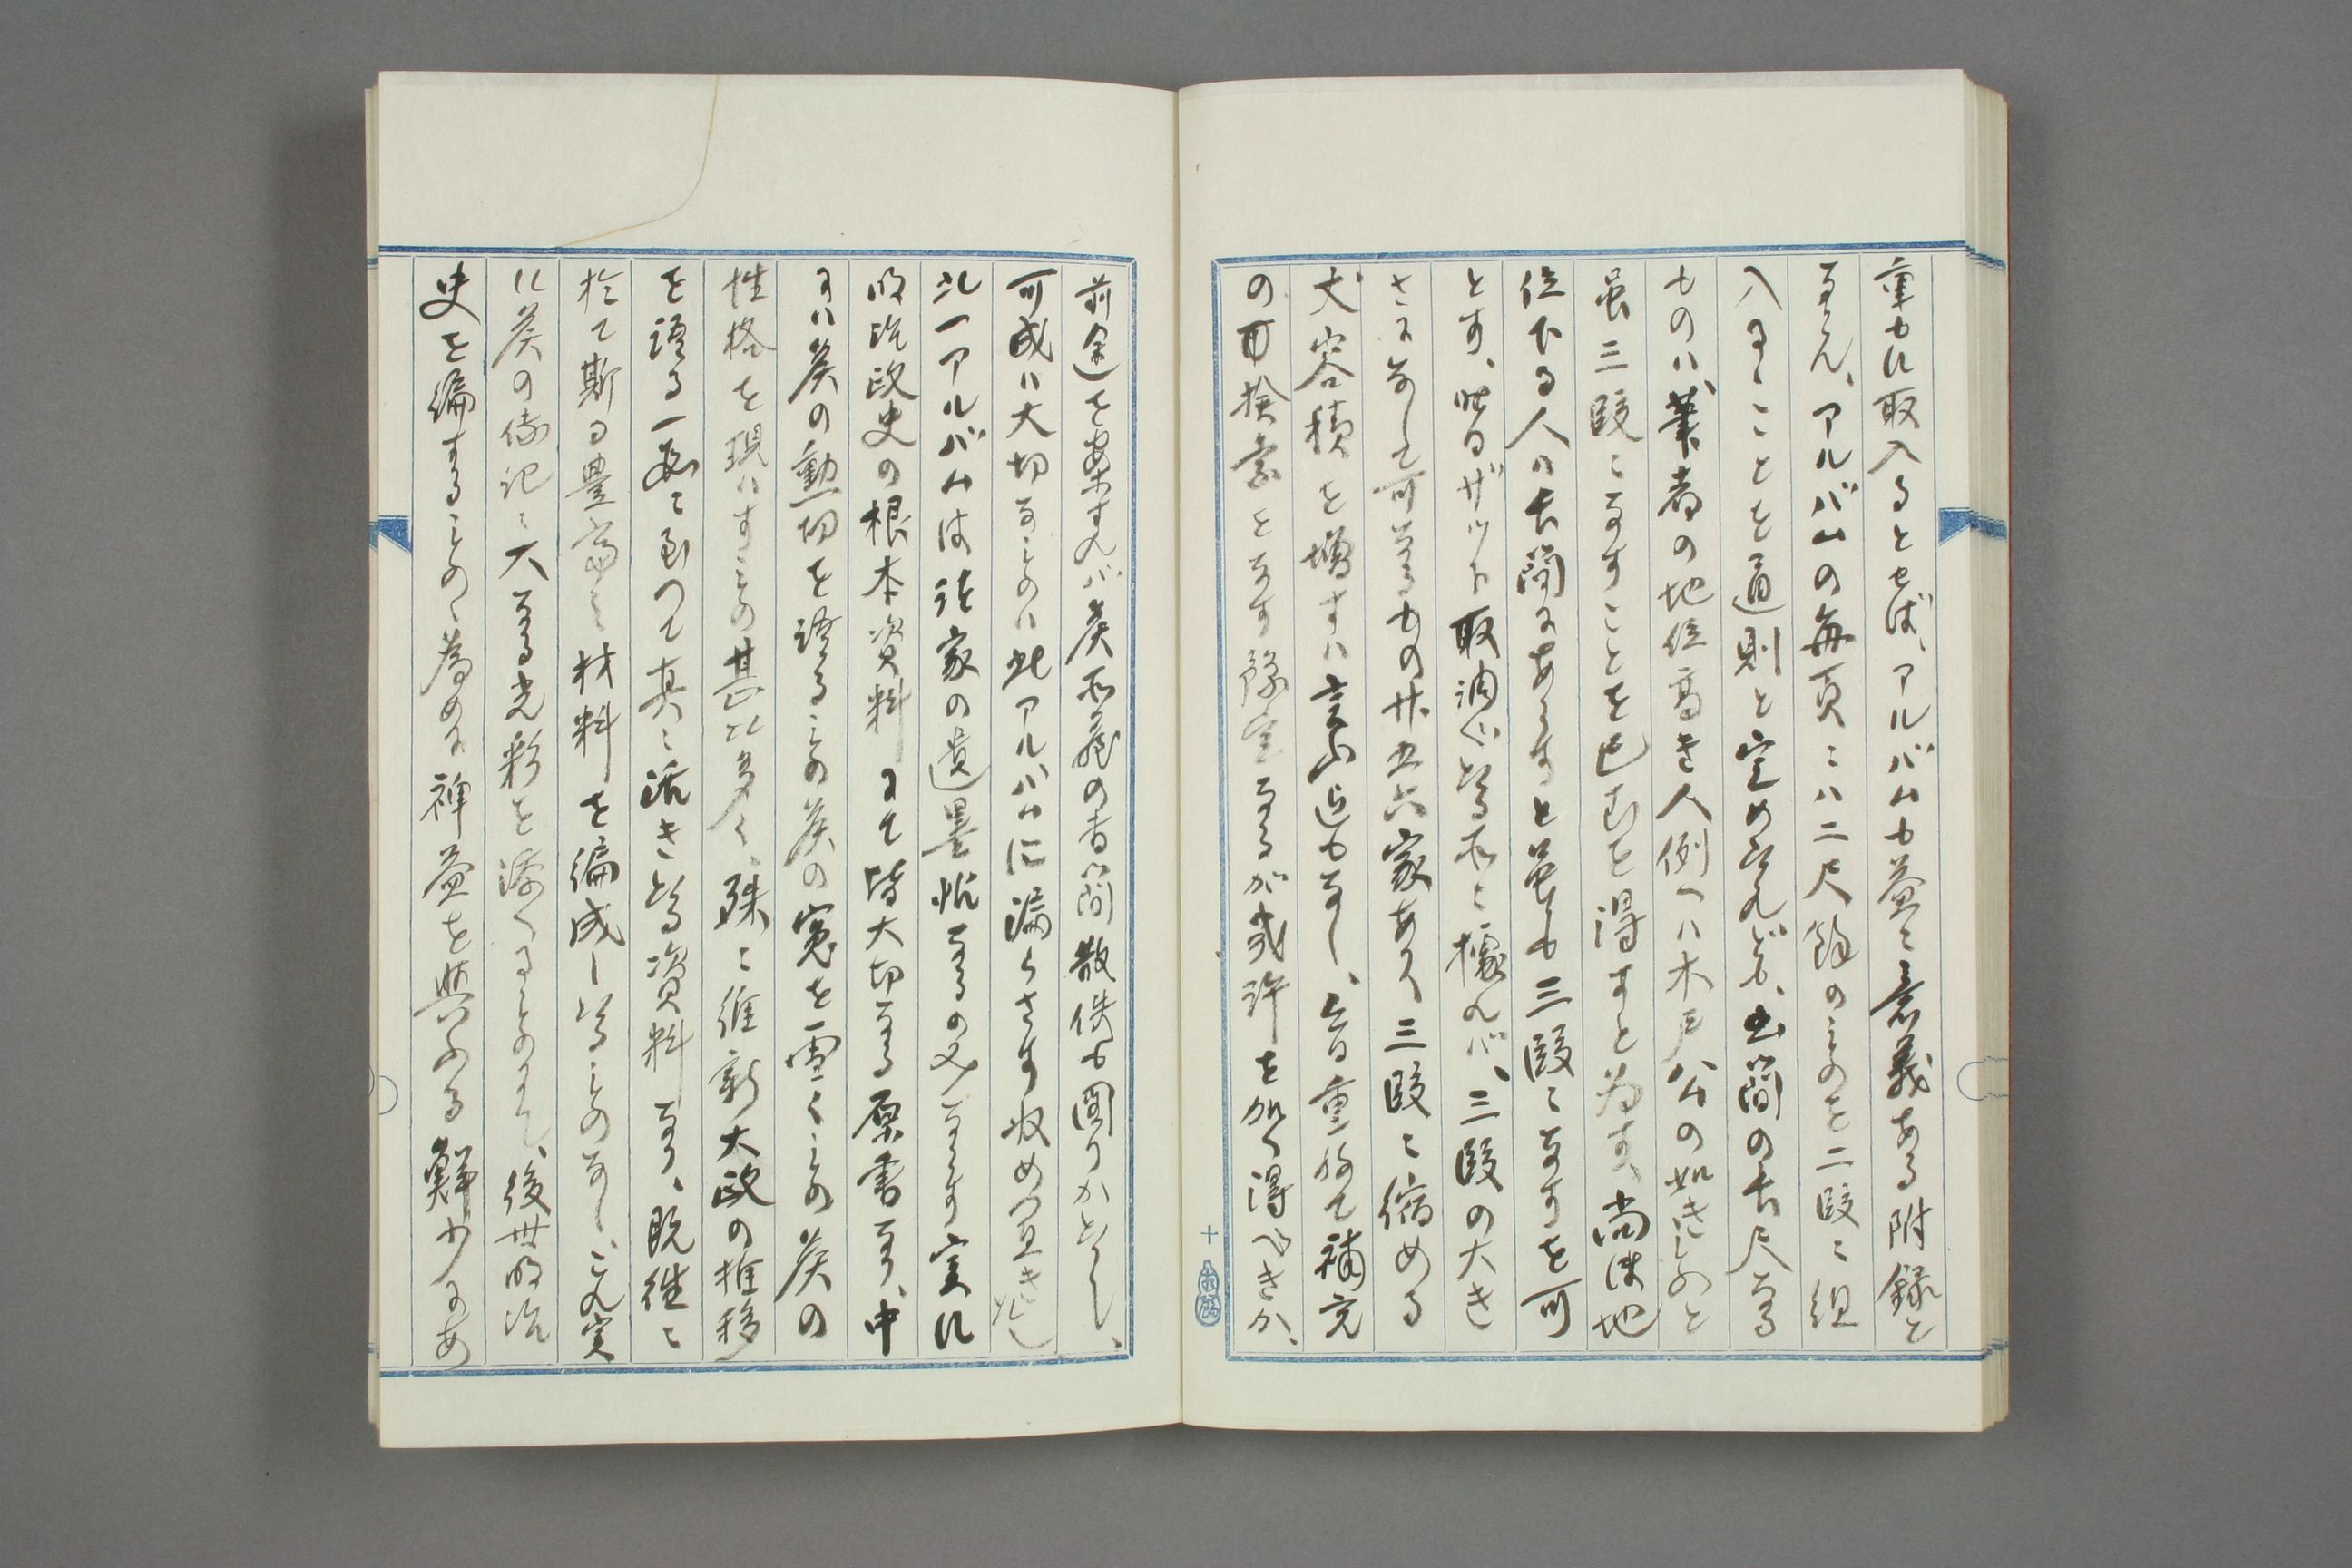 重もに取入るとせば、アルバムも益々意義ある附録と
ならん、アルバムの毎頁ニハ二尺餘のものを二段ニ組
入るゝことを通則と定めたれども、書簡の長尺なる
ものハ、筆者の地位高き人例へハ木戸公の如きものと
雖三段ニなすことを已むを得すと為す、尚ほ地
位下る人の長簡にあらすと雖も三段ニなすを可
とす、昨日ザット取調べたる所ニ拠れバ、三段の大き
さになして可なるもの廿五六家あり、三段ニ縮める
丈容積を増すハ言ふ迄もなし、今日重ねて補充
の再検索をなす豫定なるが幾許を加へ得べきか、
前途を案すれバ侯所蔵の書簡散佚も図りかたし、
可成ハ大切なものハ此アルバムに漏らさす収め置きたし
此一アルバムは諸家の遺墨帖なるのみならす実に
明治政史の根本資料にて皆大切なる原書なり、中
にハ侯の勲功を語るもの侯の寃を雪くもの侯の
性格を現ハすもの甚た多く、殊ニ維新大政の推移
を語る一段ニ至つて真ニ活きたる資料なり、既往ニ
於て斯る豊富之材料を編成したるものなし、これ実
に侯の傳記ニ大なる光彩を添へるものにて、後世明治
史を編するものゝ為めに裨益を与ふる鮮少にあ
十